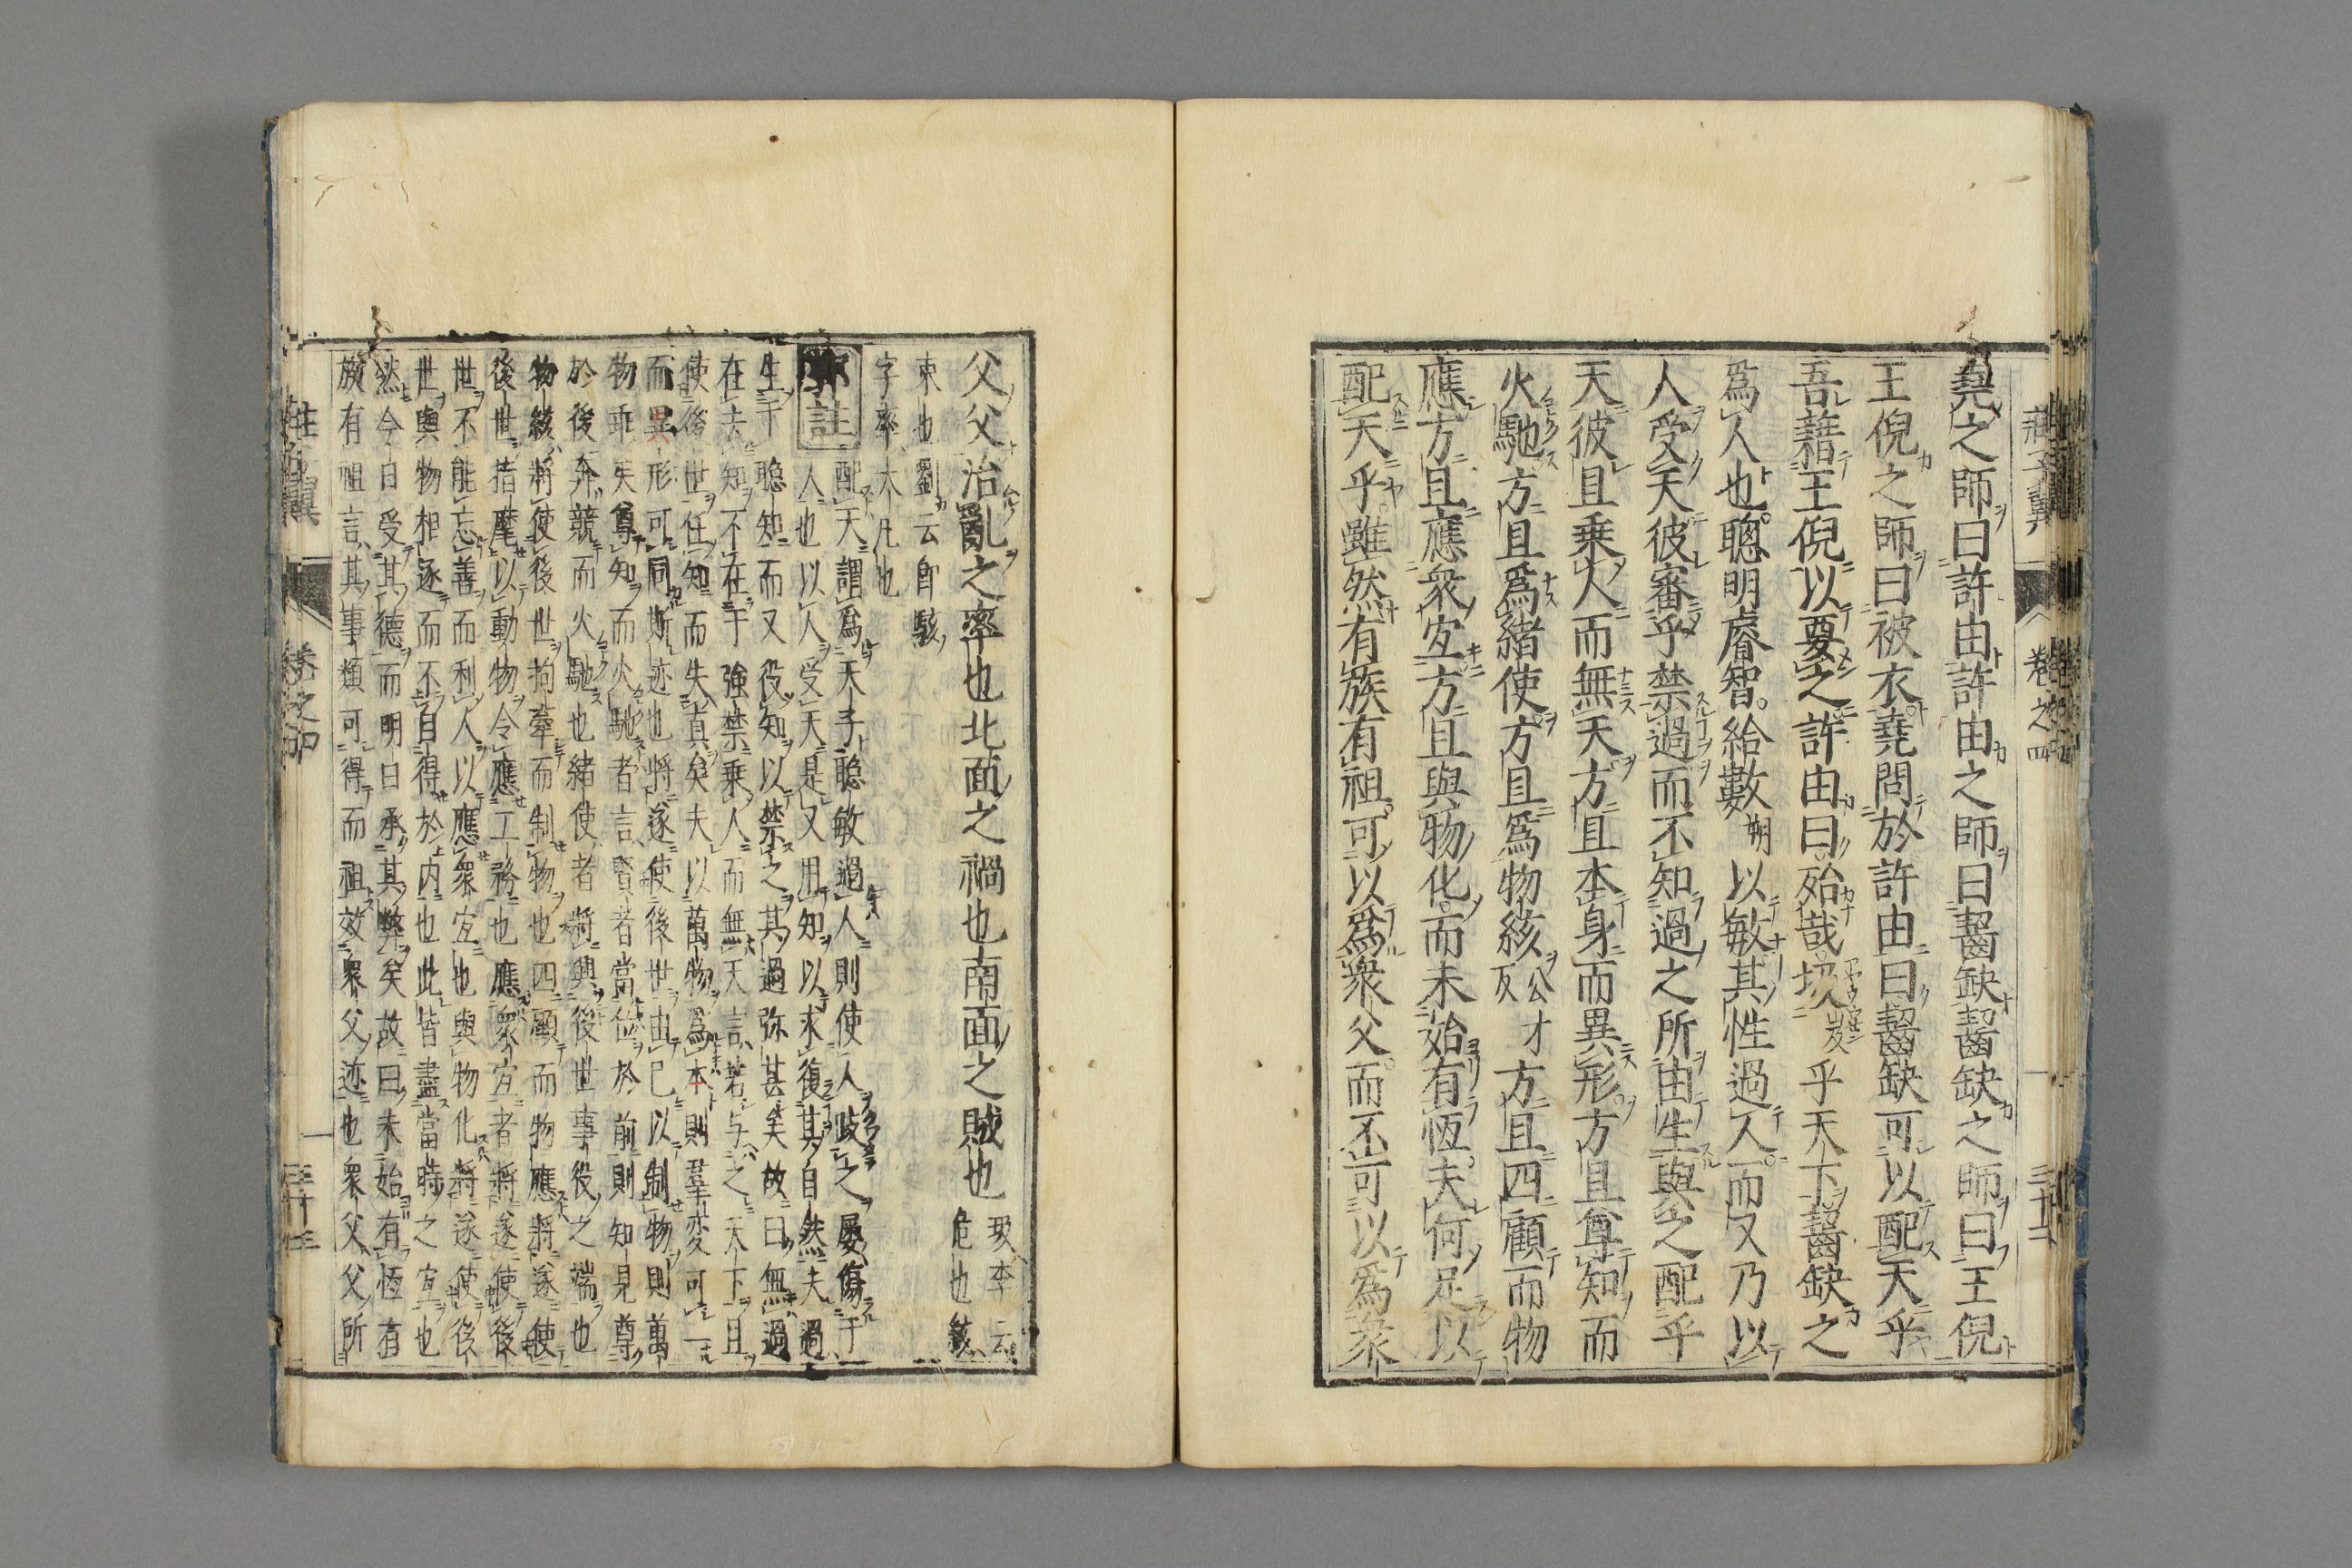 莊子翼 卷之四 三十二
堯之師曰許由許由之師曰齧缺齧缺之師曰王倪
王倪之師曰被衣堯問於許由曰齧缺可以配天乎
吾藉王倪以要之許由曰殆哉圾岌乎天下齧缺之
爲人也聰明睿智給數朔以敏其性過人而又乃以
人受天彼審乎禁過而不知過之所由生與之配乎
天彼且乗人而無天方且本身而異形方且尊知而
火馳方且爲緒使方且爲物絃公才反方且四顧而物
應方且應衆宐方且與物化而未始有恆夫何足以
配天乎雖然有族有祖可以爲衆父而不可以爲衆
父父治亂之率也北面之禍也南面之賊也圾李云危也絃
束也劉云卽駭
字率大凡也
註配天謂爲天子聦敏過人則使人跂之屡傷于
人也以人受天是又用知以求復其自然夫過
生于聦知而又役知以禁之其過弥甚矣故曰無過
在去知不在于強禁乗人而無天言若与之天下且
使後世任知而失真矣夫以萬物爲本則羣変可一
而異形可同斯迹也将遂使後世由己以制物則萬
物乖矣尊知而火馳者言賢者當位於前則知見尊
於後奔競而火馳也緒使者将興後世事役之端也
物絃将使後世拘牽而制物也四顧而物應将遂使
後世指麾以動物令應工務也應衆宐者将遂使後
世不能忘善而利人以應衆宐也與物化将遂使後
世與物相逐而不自得於内也此皆盡當時之宐也
然今日受其德而明日承其弊矣故曰未始有恆有
族有祖言其事類可得而祖效衆父迹也衆父父所
莊子翼 卷之四 三十三